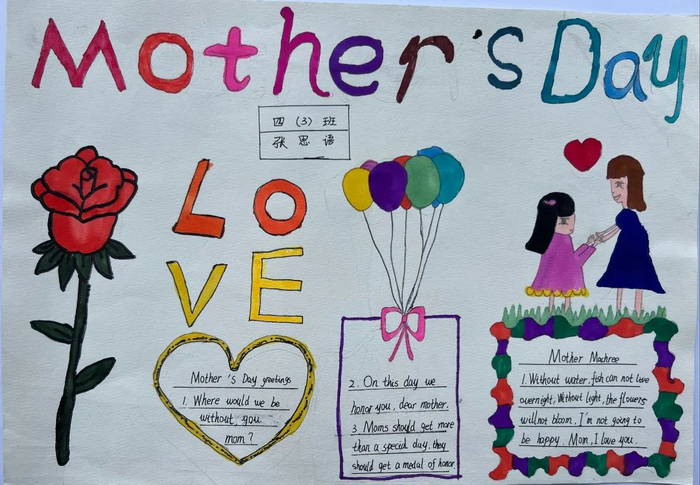 Mother's Day
四（3）班
张思语
LO
VE
Mother's Day greetings
1. Where would we be
without you
mom?
2. On this day we
honor you, dear mother.
3. Moms should get more
than a special day, they
should get a medal of honor.
Mother Machree
1. Without water, fish can not love
overnight, Without light, the flowers
will not bloom. I'm not going to
be happy. Mom, I love you.